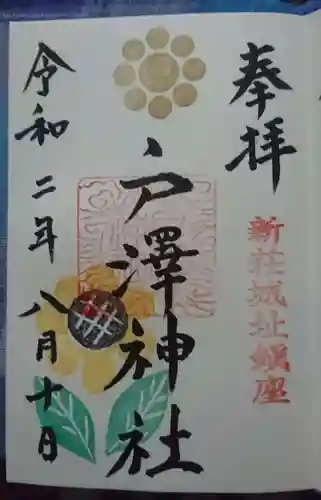 奉拝
新荘城址鎮座
戸澤神社
令和二年八月十日